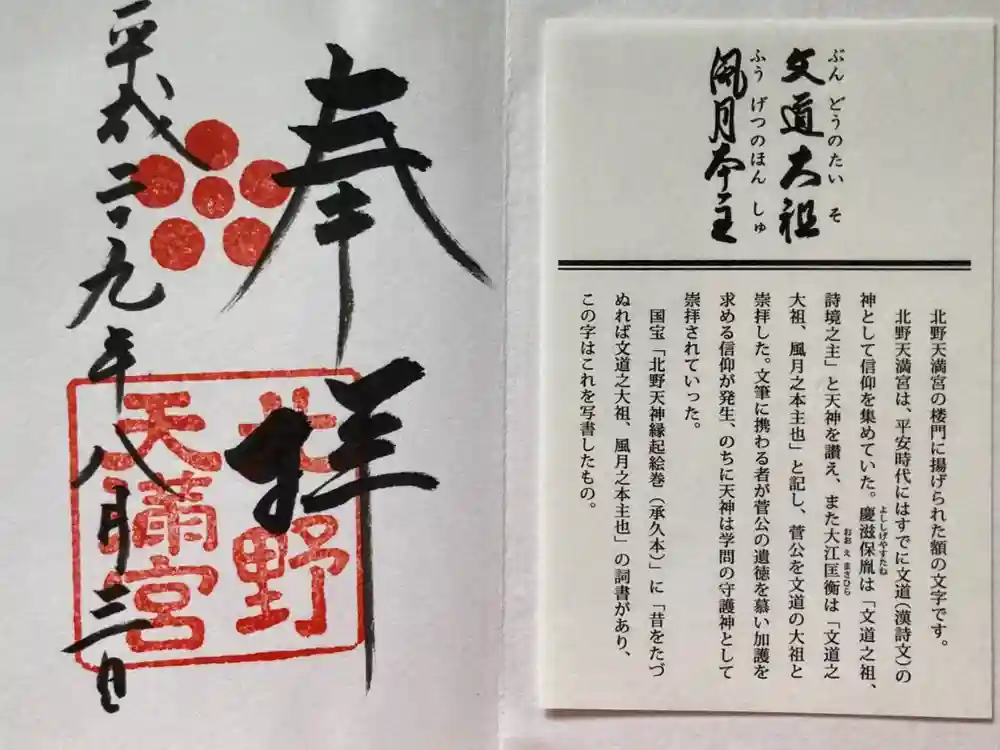 奉拝
平成二九年八月三日
北野
天満宮
文道大祖
ぶんどうのたいそ
風月本主
ふうげつのほんしゅ
北野天満宮の楼門に揚げられた額の文字です。
北野天満宮は、平安時代にはすでに文道(漢詩文)の
神として信仰を集めていた。慶滋保胤は「文道之祖、
よししげやすたね
詩境之主」と天神を讃え、また大江匡衡は「文道之
おおえまさひら
大祖、風月之本主也」と記し、菅公を文道の大祖と
崇拝した。文筆に携わる者が菅公の遺徳を慕い加護を
求める信仰が発生、のちに天神は学問の守護神として
崇拝されていった。
国宝「北野天神縁起絵巻(承久本)」に「昔をたづ
ぬれば文道之大祖、風月之本主也」の詞書があり、
この字はこれを写書したもの。